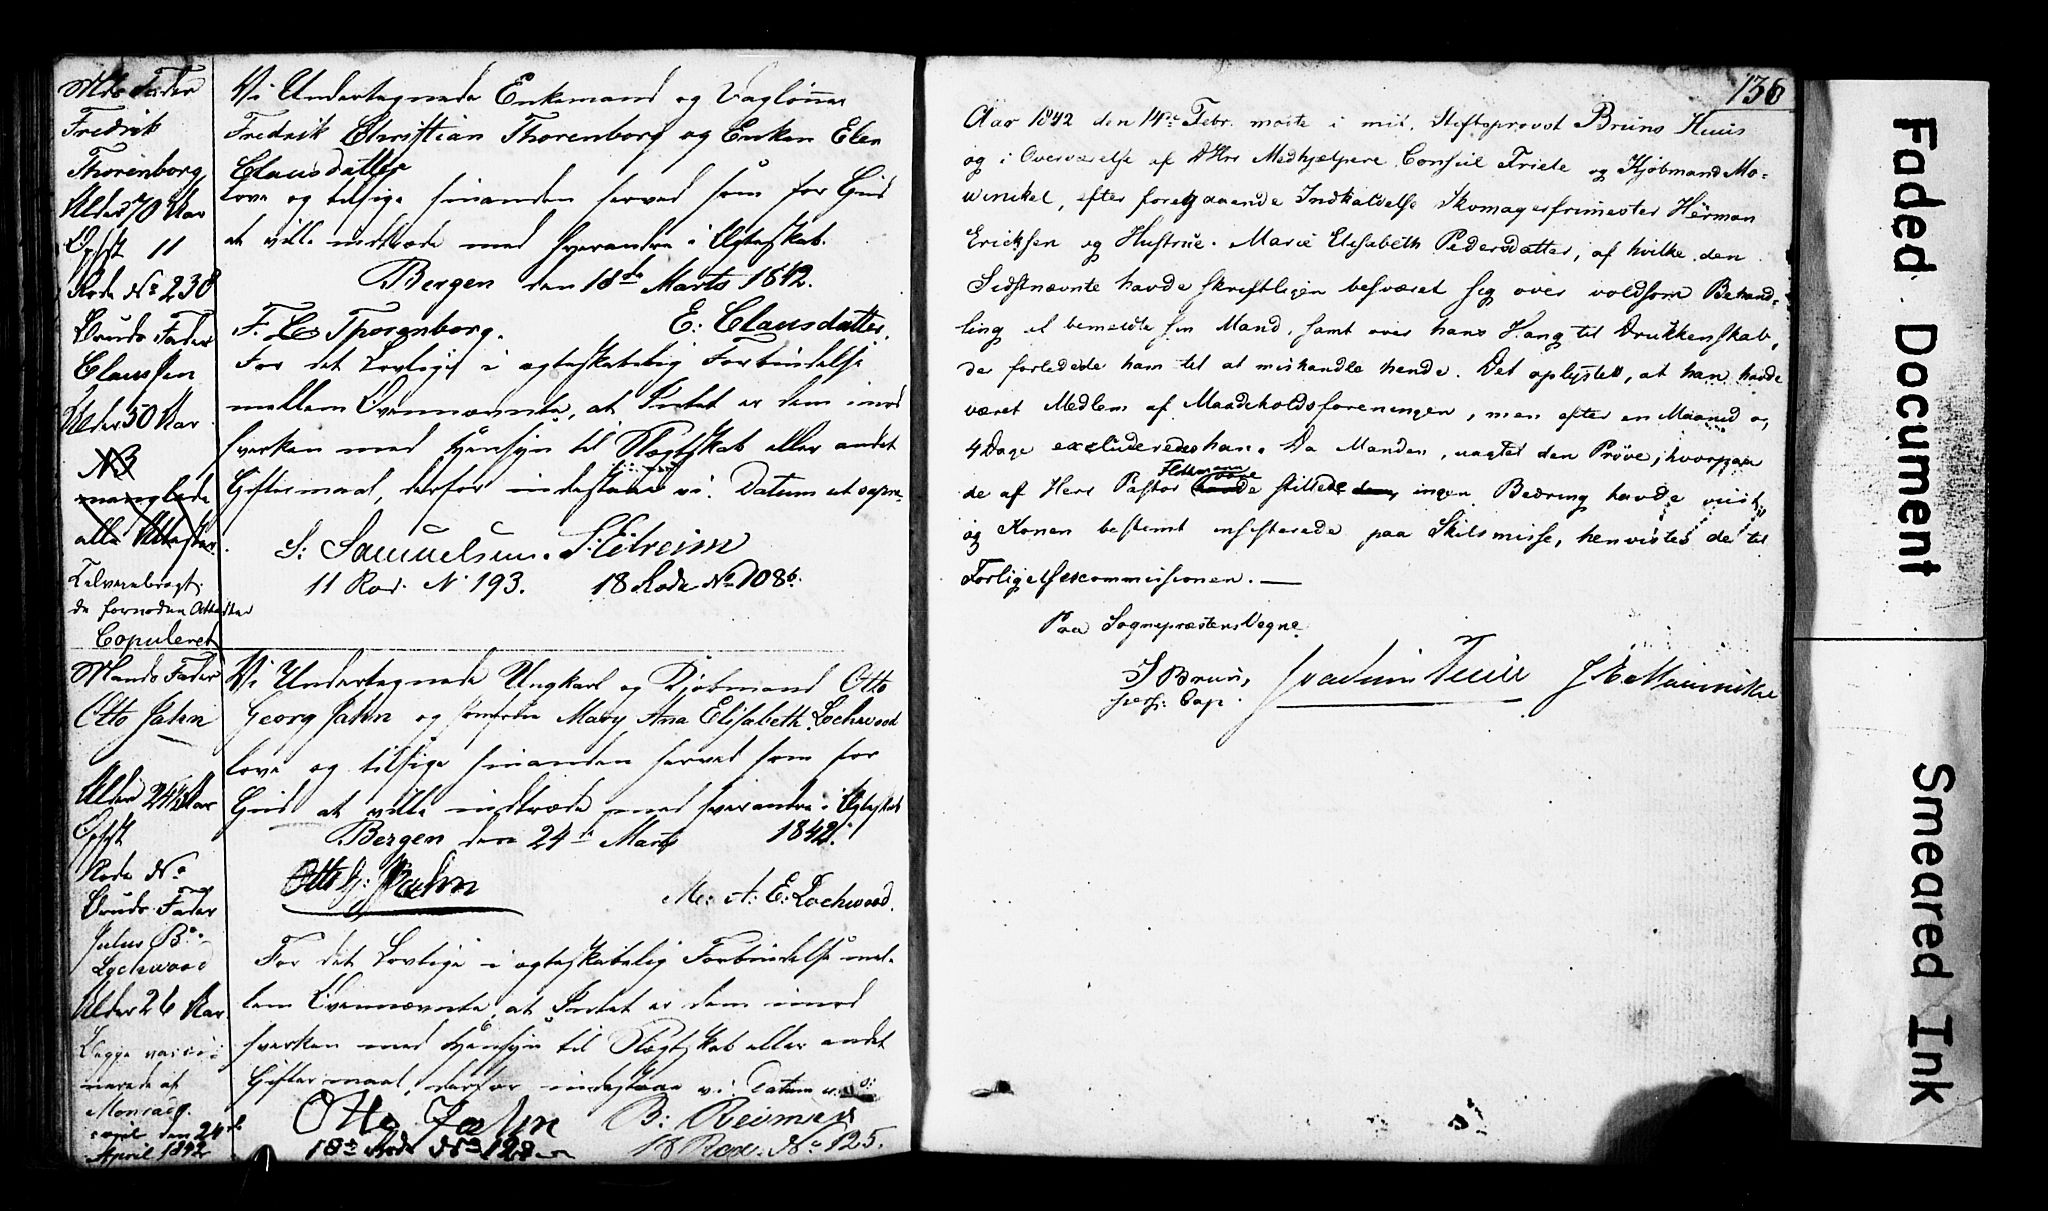 Mds Fader
Fredrik
Thorenborg
Alder 70 Aar
Opfst 11
Rode No 238
Bruds Fader
Claus Jen
Alder 50 Aar
NB
manglede
alle Attester
Tilveiebragt
de fornødne Attester
Copuleret
Vi Undertegnede Enkemand og Vaglønner
Fredrik Christian Thorenborg og Enken Elen
Clausdatter
love og tilsige hinanden herved som for Gud
at ville indtræde med hverandre i Ægteskab.
Bergen den 18de Marts 1842.
F: C: Thorenborg. E: Clausdatter.
For det Lovlige i ægteskabelig Forbindelse
mellem Ovennævnte, at Intet er dem imod
hverken med Hensyn til Slægtskab eller andet
Giftermaal, derfor indestaae vi. Datum ut supra.
S: Samuelsen. S: Eitreim
11 Rod. N. 193. 18 Rode No 108b.
Mands Fader
Otto Jahn
Alder 24½ Aar
Opfst
Rode No
Bruds Fader
Julus B.
Lochwood
Alder 26 Aar
Begge vacci-
nerede af
den 24de
April 1842
Vi Undertegnede Ungkarl og Kjøbmand Otto
Georg Jahn og Jomfrue Mary Ana Elisabeth Lochwood
love og tilsige hinanden herved som for
Gud at ville indtræde med hverandre i Ægteskab
Bergen den 24de Marts 1842.
Otto G: Jahn
M: A: E: Lochwood.
For det Lovlige i ægteskabelig Forbindelse mel-
lem Ovennævnte, at Intet er dem imod
hverken med Hensyn til Slægtskab eller andet
Giftermaal, derfor indestaae vi. Datum u. s:
Otto Jahn B: Reimers
18de Rode No 128 18 Rode No 125.
136
Aar 1842 den 14de Febr. mødte i mit, Stiftsprovst Bruns Huus
og i Overværelse af DHrr Medhjælpere Consul Friele og Kjøbmand Mo-
winckel, efter foregaaende Indkaldelse Skomagerfrimester Herman
Ericksen og Hustrue Marie Elisabeth Pedersdatter, af hvilke den
Sidstnævnte havde skriftligen besværet sig over voldsom Behand-
ling af bemeldte sin Mand, samt over hans Hang til Drukkenskab,
der forledede ham til at mishandle hende. Det oplystes, at han havde
været Medlem af Maadeholdsforeningen, men efter en Maaned og
4 Dage excluderedes han. Da Manden, uagtet den Prøve, hvorpaa
de af Herr Pastor Flottmann vare stillede, ingen Bedring havde viist
og Konen bestemt insisterede paa Skilsmisse, henvistes de til
Forligelsescommissionen. —
Paa Sognepræstens Vegne
S Brun,
pers: Cap.
Joachim Friele
Faded Document
Smeared Ink